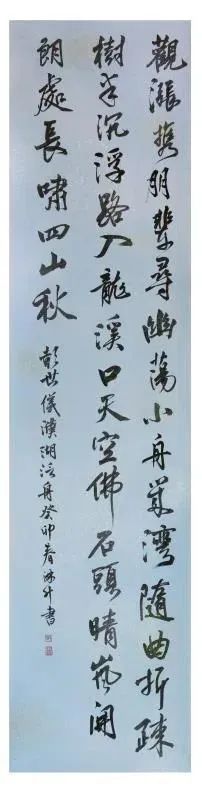 觀漲携朋輩尋幽蕩小舟幾灣隨曲折疎
樹半沉浮路入龍溪口天空佛石頭晴嵐開
朗處長嘯四山秋
彭世儀湖泛舟癸卯春書